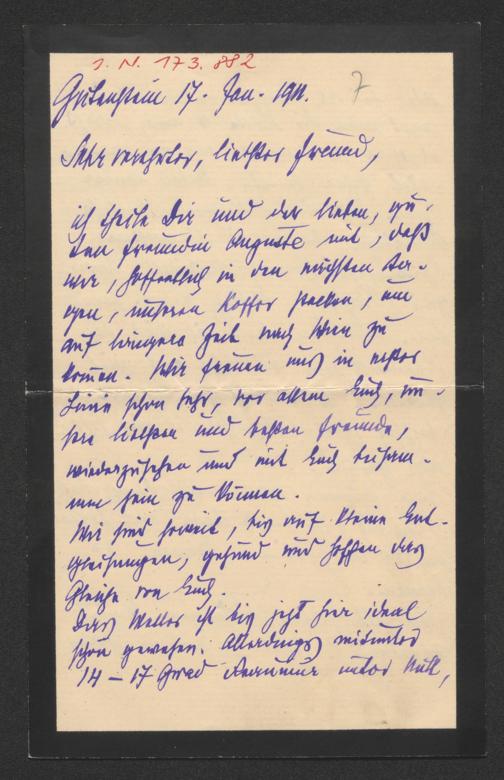 I. N. 173.882
7
Gutenstein 17. Jan. 1911.
Sehr verehrter, liebster Freund,
ich theile Dir und der lieben, gu-
ten Freundin Auguste mit, daß
wir, hoffentlich in den nächsten Ta-
gen, unseren Koffer packen, um
auf längere Zeit nach Wien zu
komen. Wir freuen uns in erster
Linie schon sehr, vor allem Euch, un-
sere liebsten und besten Freunde,
wiederzusehen und mit Euch beisam-
men sein zu können.
Wir sind soweit, bis auf kleine Ent-
gleisungen, gesund und hoffen das
Gleiche von Euch.
Das Wetter ist bis jetzt hier ideal
schön gewesen. Allerdings mitunter
14 – 17 Grad Reaumur unter Null,